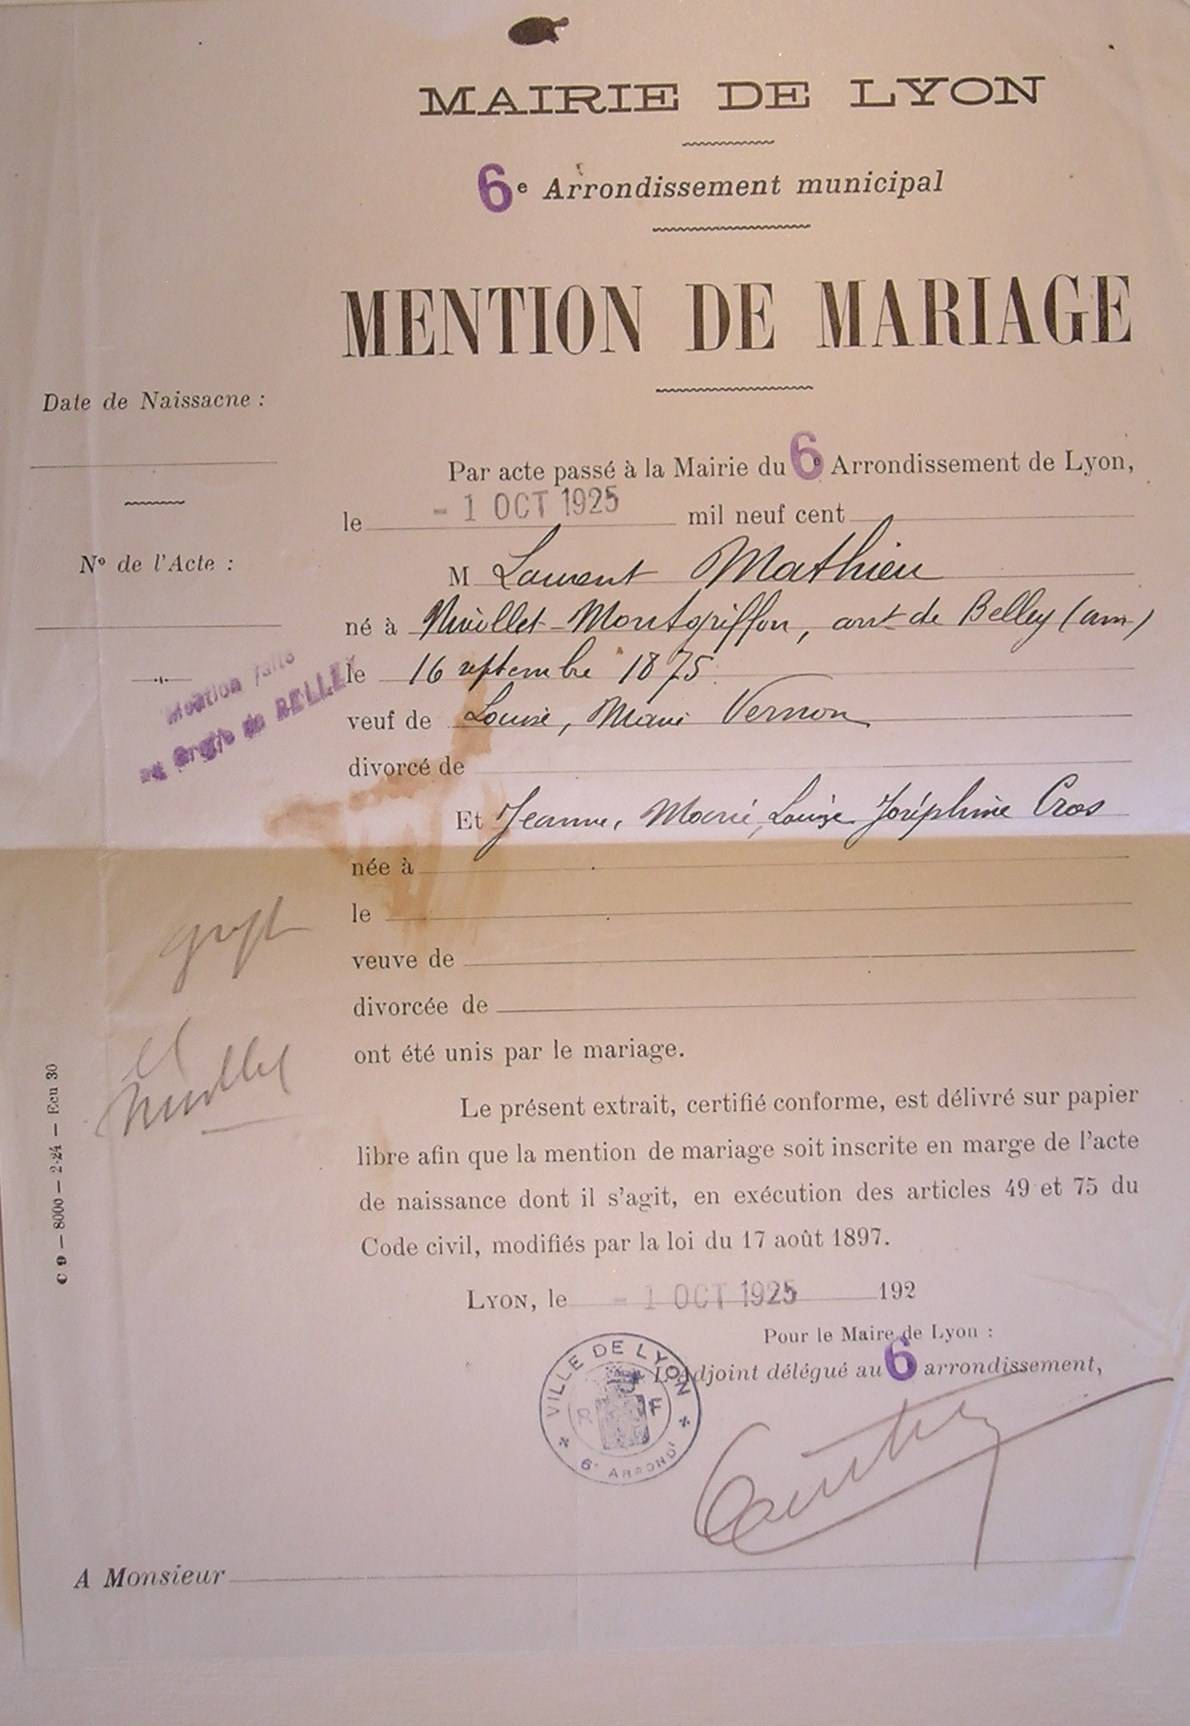 MAIRIE DE LYON
6e Arrondissement municipal
MENTION DE MARIAGE
Date de Naissacne :
Par acte passé à la Mairie du 6e Arrondissement de Lyon,
le - 1 OCT 1925 mil neuf cent
No de l'Acte :
M Laurent Mathieu
né à Nivollet-Montgriffon, arrt de Belley (ain)
le 16 septembre 1875
Mention faite
au Greffe de BELLEY
veuf de Louise, Marie Vernon
divorcé de
Et Jeanne, Marie, Louise Joséphine Cros
née à
le
veuve de
greffe
divorcée de
ont été unis par le mariage.
et
Nivollet
Le présent extrait, certifié conforme, est délivré sur papier
libre afin que la mention de mariage soit inscrite en marge de l'acte
de naissance dont il s'agit, en exécution des articles 49 et 75 du
Code civil, modifiés par la loi du 17 août 1897.
C 9 — 8000 — 2-24 — Ecu 30
LYON, le - 1 OCT 1925 192
Pour le Maire de Lyon :
L'Adjoint délégué au 6 arrondissement,
VILLE DE LYON
R F
6e ARRONDt
A Monsieur